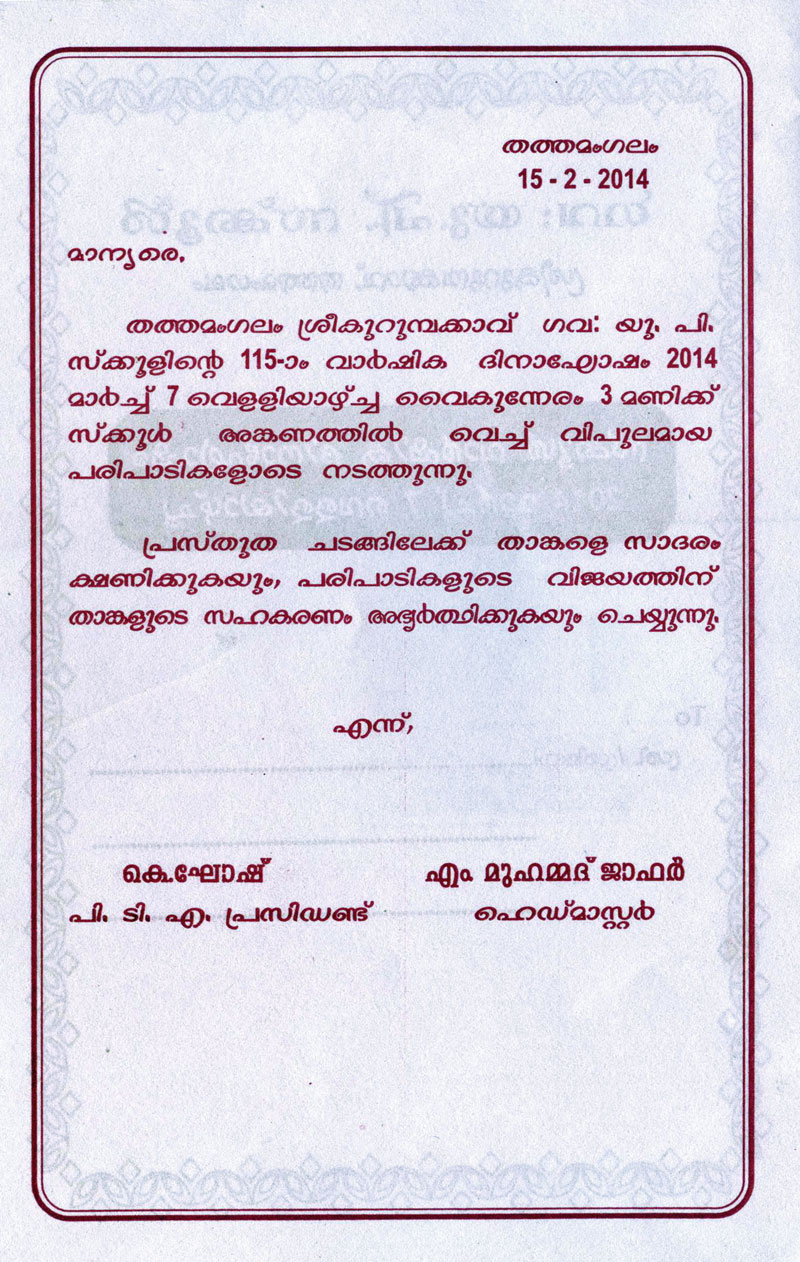 തത്തമംഗലം
15 - 2 - 2014
മാന്യരെ,
തത്തമംഗലം ശ്രീകുറുമ്പക്കാവ് ഗവ: യു. പി.
സ്ക്കൂളിന്റെ 115-ാം വാർഷിക ദിനാഘോഷം 2014
മാർച്ച് 7 വെളളിയാഴ്ച്ച വൈകുന്നേരം 3 മണിക്ക്
സ്ക്കൂൾ അങ്കണത്തിൽ വെച്ച് വിപുലമായ
പരിപാടികളോടെ നടത്തുന്നു.
പ്രസ്തുത ചടങ്ങിലേക്ക് താങ്കളെ സാദരം
ക്ഷണിക്കുകയും, പരിപാടികളുടെ വിജയത്തിന്
താങ്കളുടെ സഹകരണം അഭ്യർത്ഥിക്കുകയും ചെയ്യുന്നു.
എന്ന്,
കെ.ഘോഷ് എം. മുഹമ്മദ് ജാഫർ
പി. ടി. എ. പ്രസിഡണ്ട് ഹെഡ്മാസ്റ്റർ